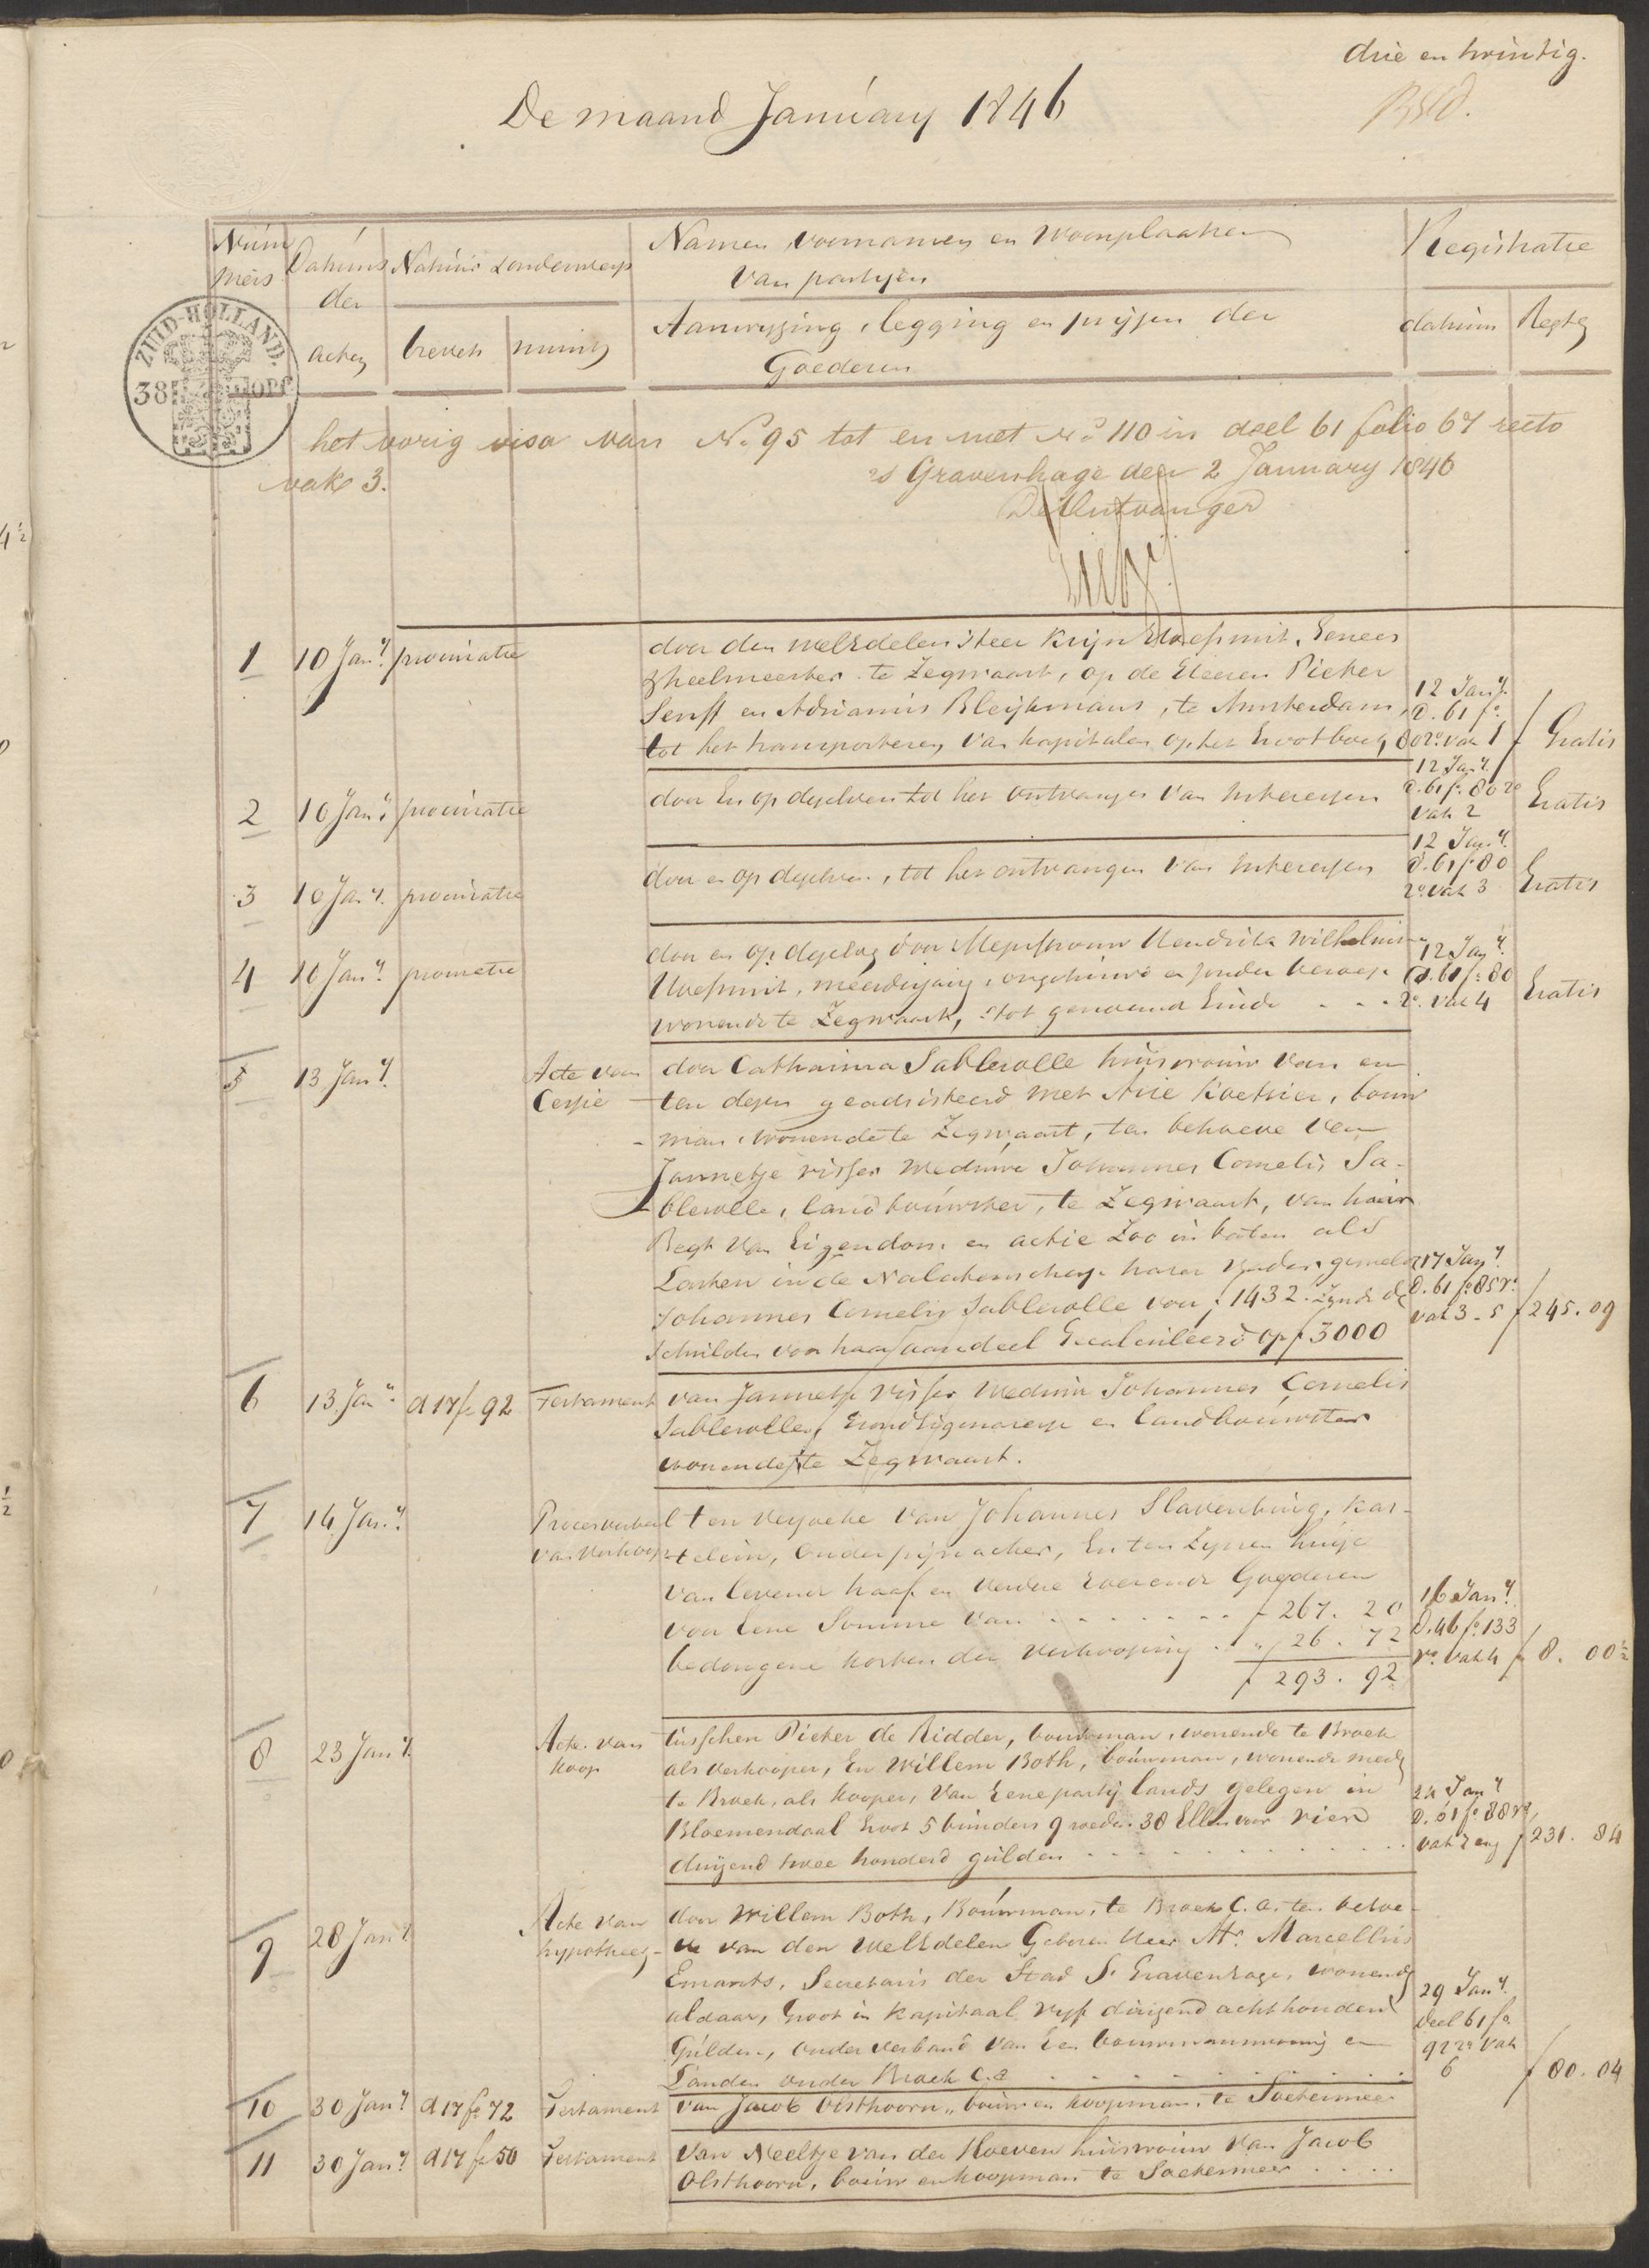 drie en twintig.
De maand January 1846
Num
mers
Datums
der
acten
Natuur & onderwerp
brevets
minuts
Namen, voornamen en woonplaatsen
van partyen
Aanwyzing, legging en prijzen der
Goederen
Registratie
datum
Regten
ZUID-HOLLAND.
38
het vorig visa van No. 95 tot en met No. 110 in deel 61 folio 67 recto
vak 3.
's Gravenhage den 2 January 1846
De Ontvanger
1 10 Jany. procuratie
door den welEdelen Heer Krijn
heelmeester te Zegwaart, op de Heeren Pieter
Senff en Adrianus Bleijkmans, te Amsterdam,
tot het transporteren van kapitalen op het Grootboek
12 Jany.
D. 61 fo.
80 ro. vak 1
Gratis
2 10 Jany. procuratie
door en op dezelven tot het ontvangen van Interessen
12 Jany.
D. 61 fo. 80 ro
vak 2
Gratis
3 10 Jany. procuratie
door en op dezelven, tot het ontvangen van Interessen
12 Jany.
D. 61 fo 80
ro. vak 3
Gratis
4 10 Jany. procuratie
door en op dezelven door Mejufvrouw Hendrika Wilhelmina
meerderjarig, ongehuwd en zonder beroep
wonende te Zegwaart, tot genoemd Einde . . .
12 Jany.
D. 61 fo. 80
ro. vak 4
Gratis
5 13 Jany.
Acte van
Cessie
door Catharina Sablerolle huisvrouw van en
ten dezen geadsisteerd met Arie Koetsier, bouw
- man, wonende te Zegwaart, ten behoeve van
Jannetje Visser Weduwe Johannes Cornelis Sa-
blerolle, landbouwster, te Zegwaart, van haar
Regt van Eigendom en actie zoo in baten als
Lasten in de Nalatenschap harer Vader gemelde
Johannes Cornelis Sablerolle voor f 1432. Zynde de
schulden voor haar aandeel Gecalculeerd op f 3000
17 Jany.
D. 61 fo. 85 ro.
vak 3-5
f 245.09
6 13 Jany. d 17 fo 92 Testament
van Jannetje Visser Weduwe Johannes Cornelis
Sablerolle, Grondeigenaresse en landbouwster
wonende te Zegwaart.
7 14 Jany.
Procesverbaal
van Verkoop
ten verzoeke van Johannes Slavenburg, kas-
telein, onder pijnacker, En ten Zynen huize
van levende haaf en verdere roerende Goederen
voor eene Somme van . . . . . . . f 267. 20
bedongene kosten der verkooping . . " 26. 72
f 293. 92
16 Jany.
D. 46 fo. 133
ro. vak 4
f 8. 00½
8 23 Jany.
Acte van
koop
tusschen Pieter de Ridder, bouwman, wonende te Broek
als verkooper, En Willem Both, bouwman, wonende mede
te Broek, als kooper, van Eene partij lands gelegen in
Bloemendaal Groot 5 bunders 9 roeden 38 Ellen voor vier
duizend twee honderd gulden . . . . . . . . . . .
24 Jany
D. 61 fo 88 ro.
f 231. 84
9 28 Jany.
Acte van
hypotheek
door Willem Both, Bouwman, te Broek C.a. ten behoe-
ve van den WelEdelen Geboren Heer Mr. Marcellus
Emants, Secretaris der Stad S' Gravenhage, wonende
aldaar, Groot in kapitaal vyf duizend acht honderd
Gulden, onder verband van Een bouwmanswoning en
Landen onder Broek C.a . . . . . . . . . . .
29 Jany.
Deel 61 fo.
92 ro vak
6
f 80. 04
10 30 Jany. d 17 fo 72 Testament
van Jacob Olsthoorn, bouw en koopman, te Soetermeer
11 30 Jany. d 17 fo 50 Testament
Van Neeltje van der Hoeven huisvrouw van Jacob
Olsthoorn, bouw en koopman te Soetermeer . . . . .